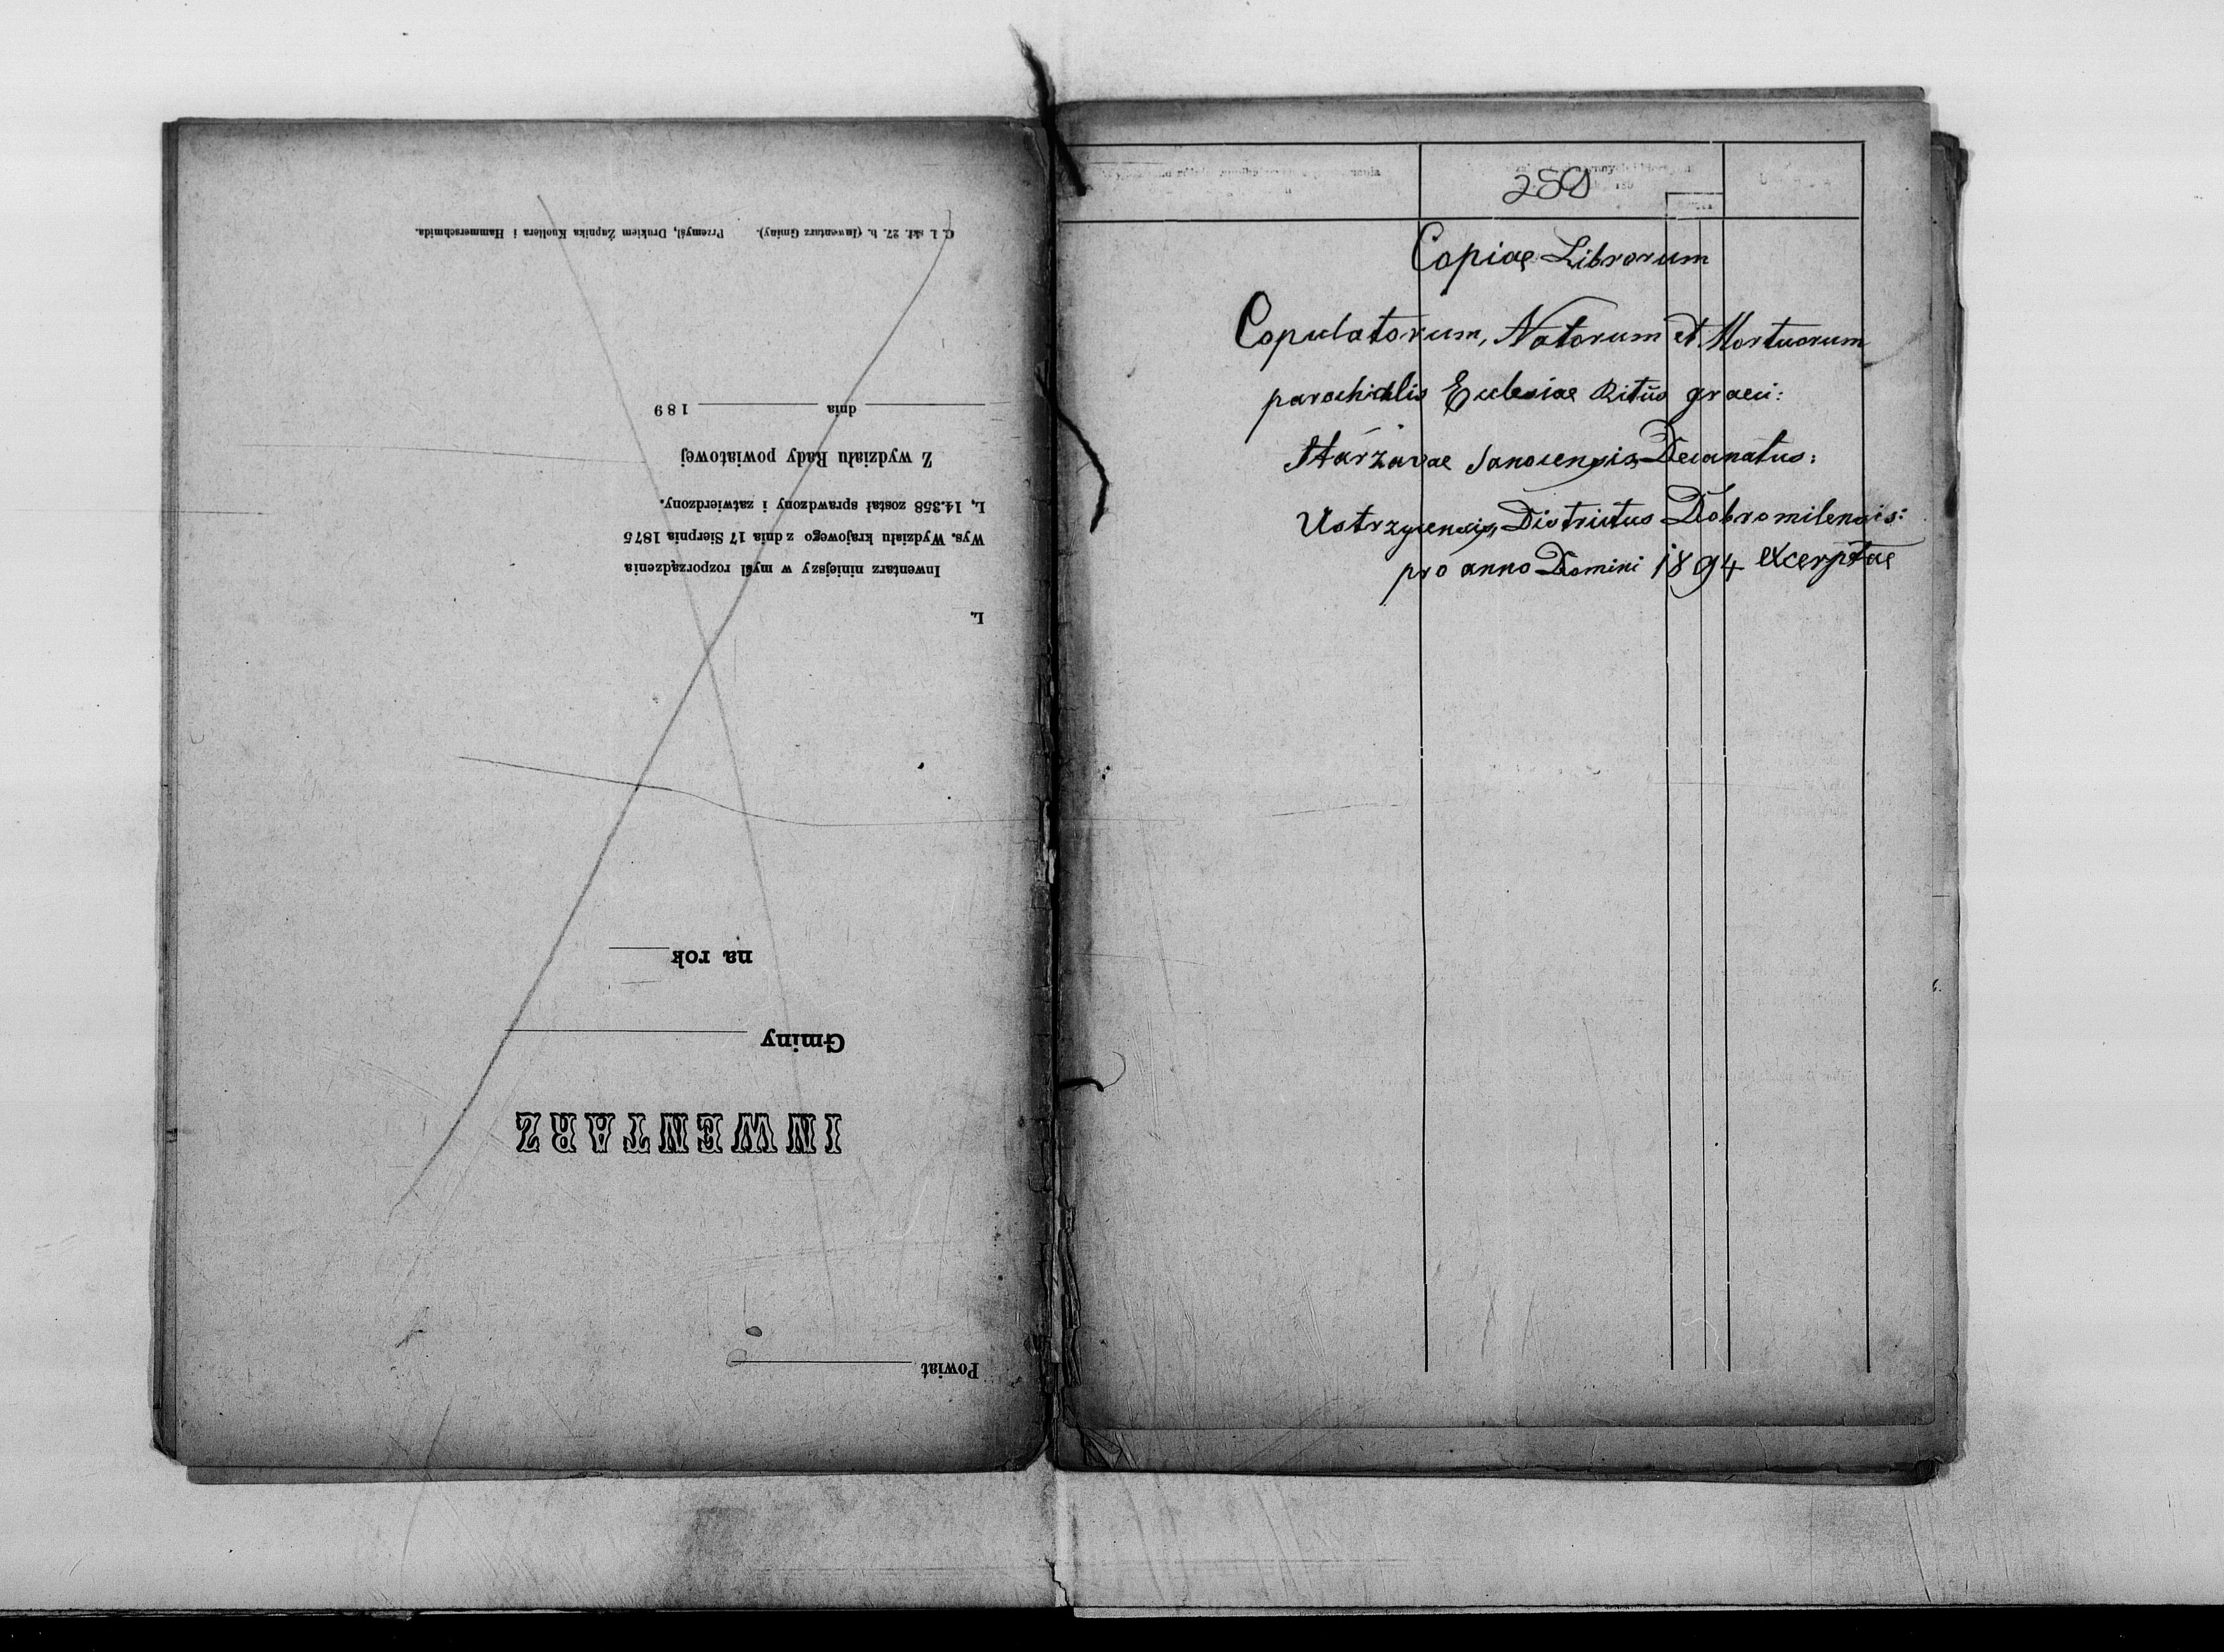 Powiat
INWENTARZ
Gminy
na rok
L.
Inwentarz niniejszy w myśl rozporządzenia
Wys. Wydziału krajowego z dnia 17 Sierpnia 1875
L. 14.358 został sprawdzony i zatwierdzony.
Z wydziału Rady powiatowej
dnia 189
C. l. skł. 27. b. (Inwentarz Gminy). Przemyśl, Drukiem Żupnika Knollera i Hammerschmida.
Copiae Librorum
Copulatorum, Natorum et Mortuorum
parochialis Ecclesiae Ritus graeci:
Starzavae Sanocensis, Decanatus:
Ustrzycensis, Districtus Dobromilensis:
pro anno Domini 1894 excerptae